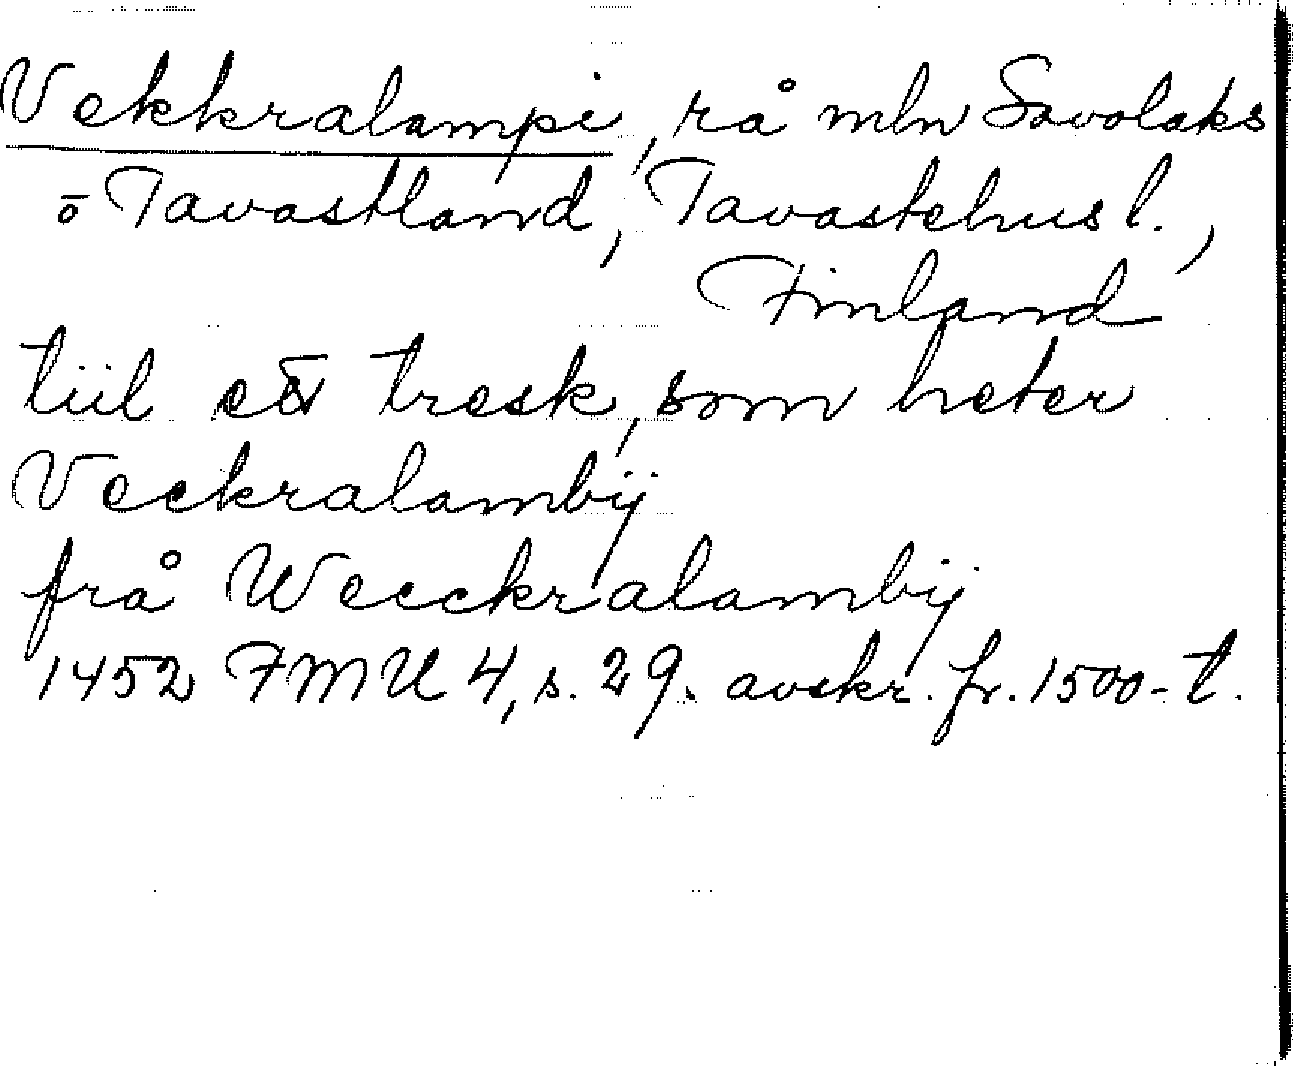 Vekkralampi, rå mln Savolaks
o Tavastland, Tavastehus l.,
Finland
tiil ett tresk, som heter
Veckralambij
frå Weeckralambij
1452 FMU 4, s. 29. avskr. fr. 1500-t.